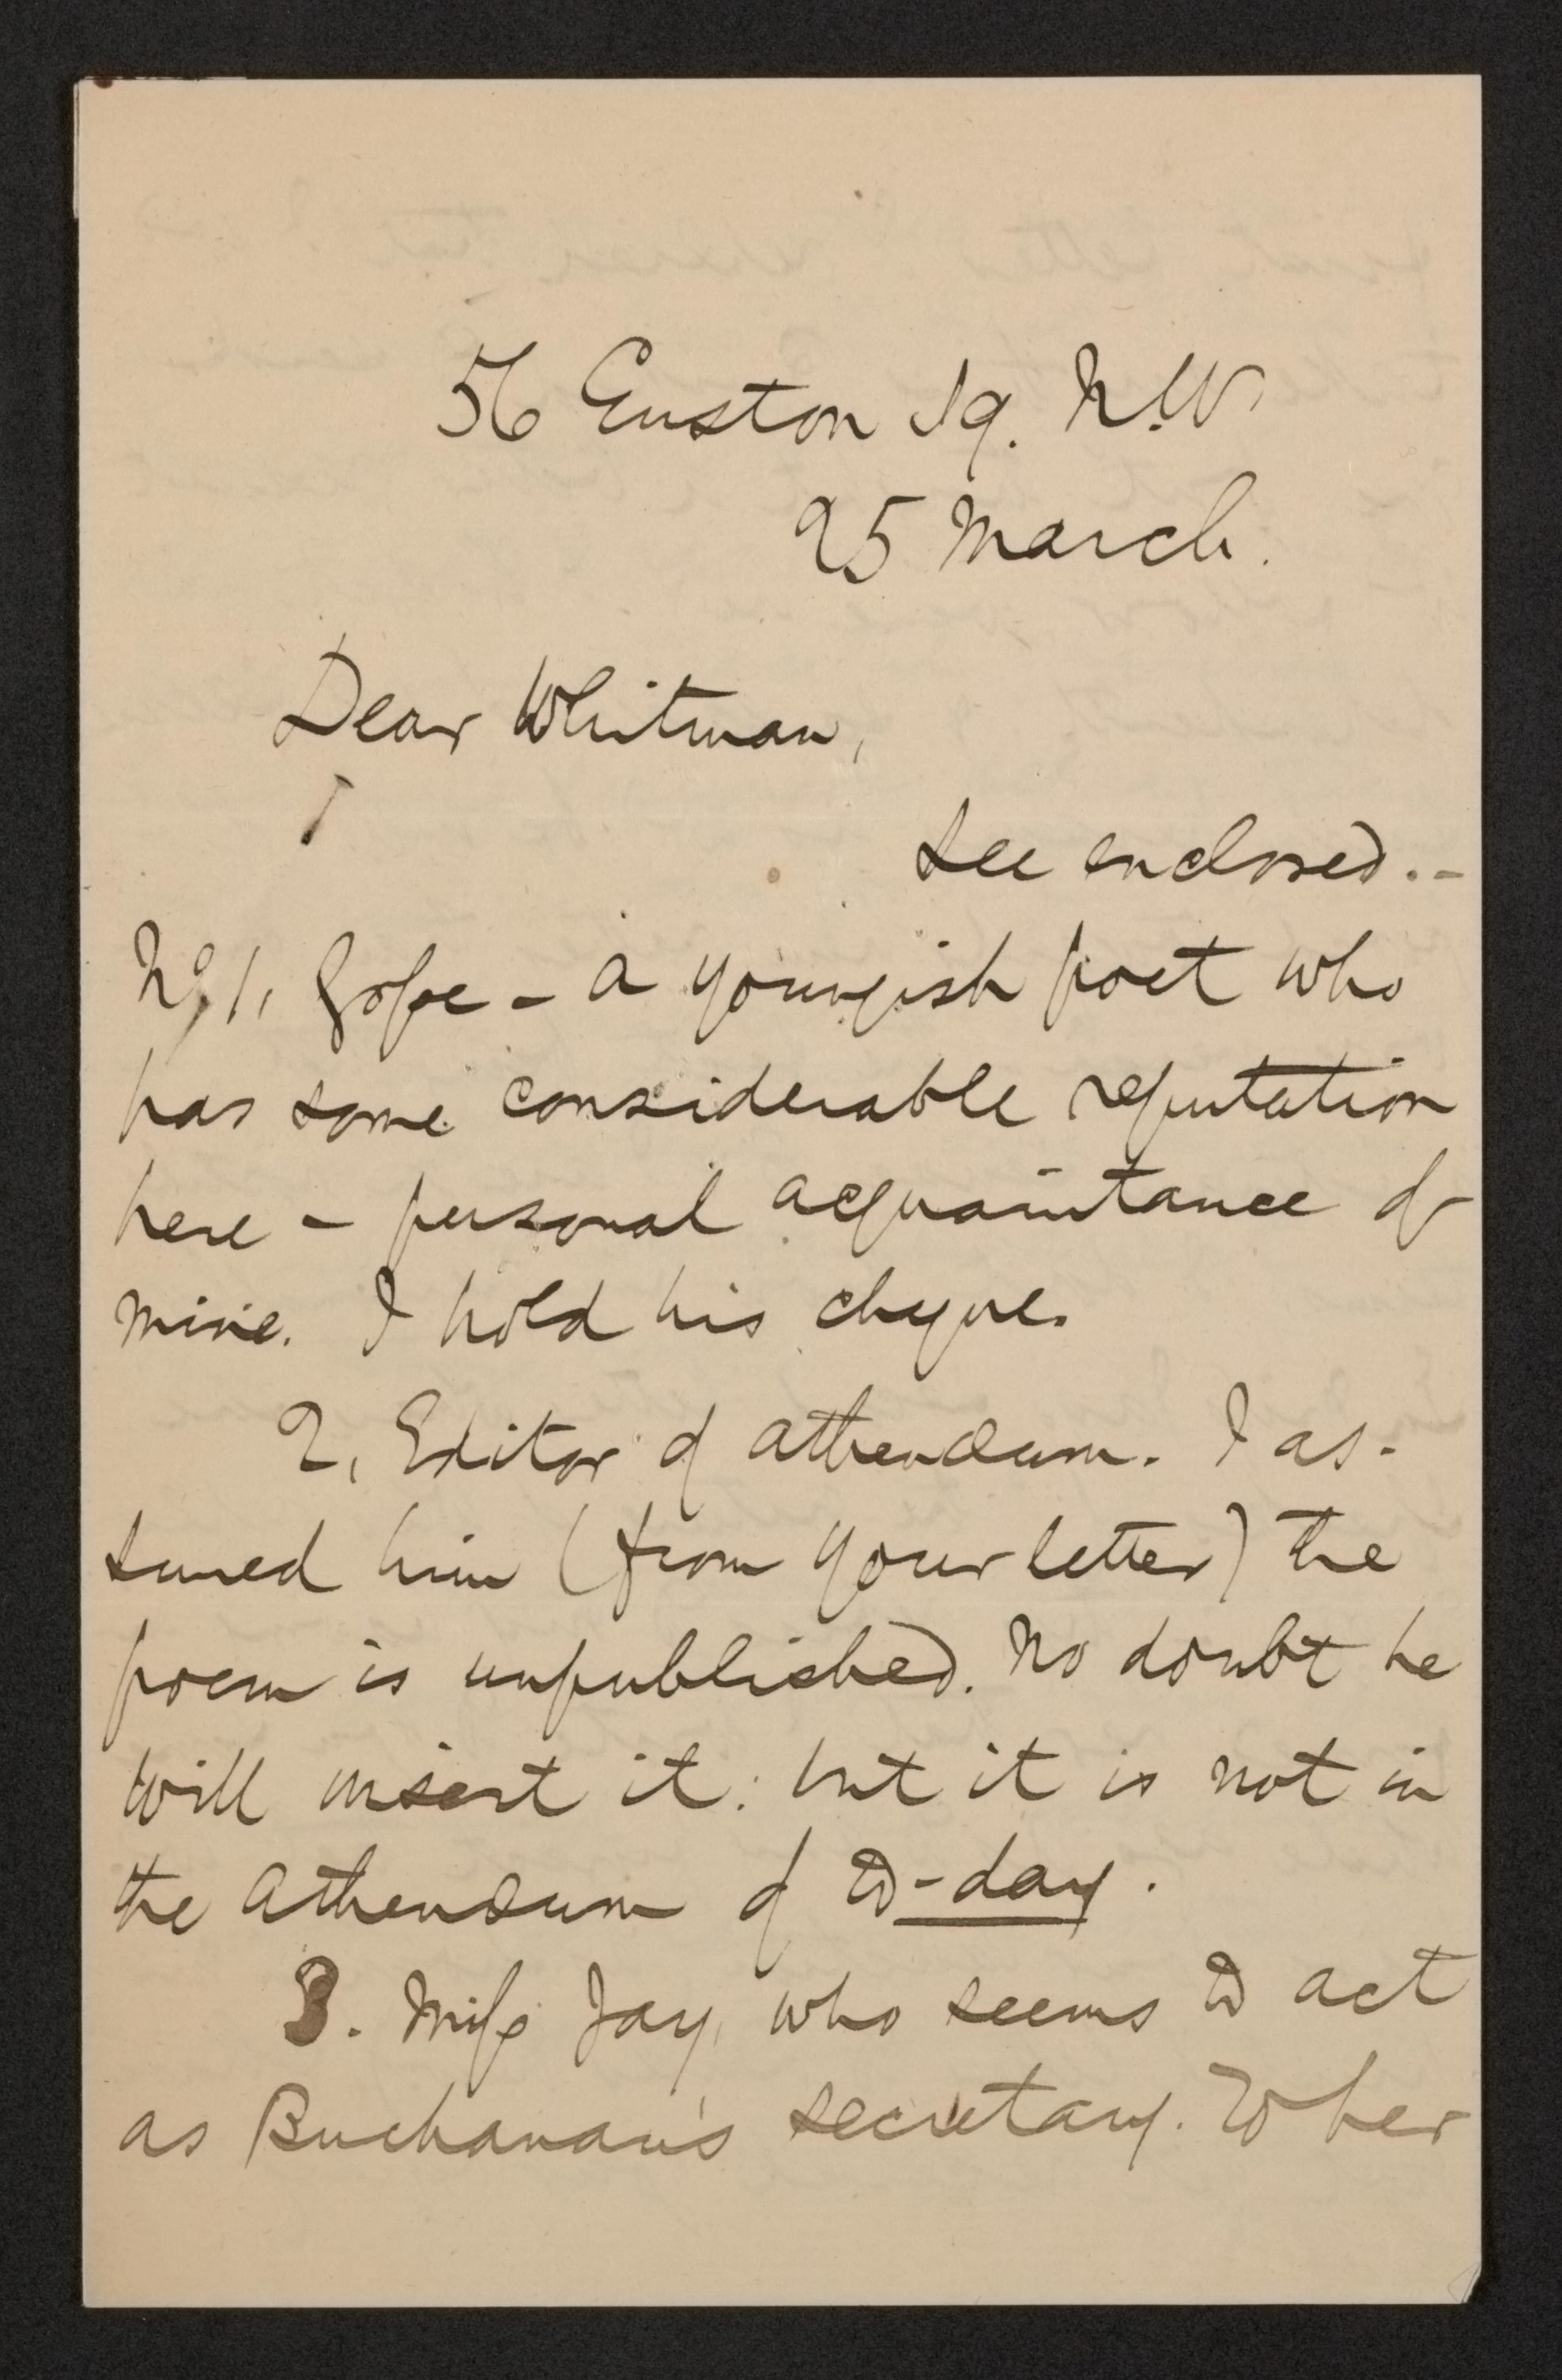 56 Euston Sq. N.W.
25 March.
Dear Whitman,
See enclosed.—
No. 1, Gosse – a youngish poet who
has some considerable reputation
here – personal acquaintance of
mine. I hold his cheque.
2, Editor of Athenæum. I as-
sured him (from your letter) the
poem is unpublished. No doubt he
will insert it: but it is not in
the Athenæum of to-day.
3. Miss Jay, who seems to act
as Buchanan's secretary. To her